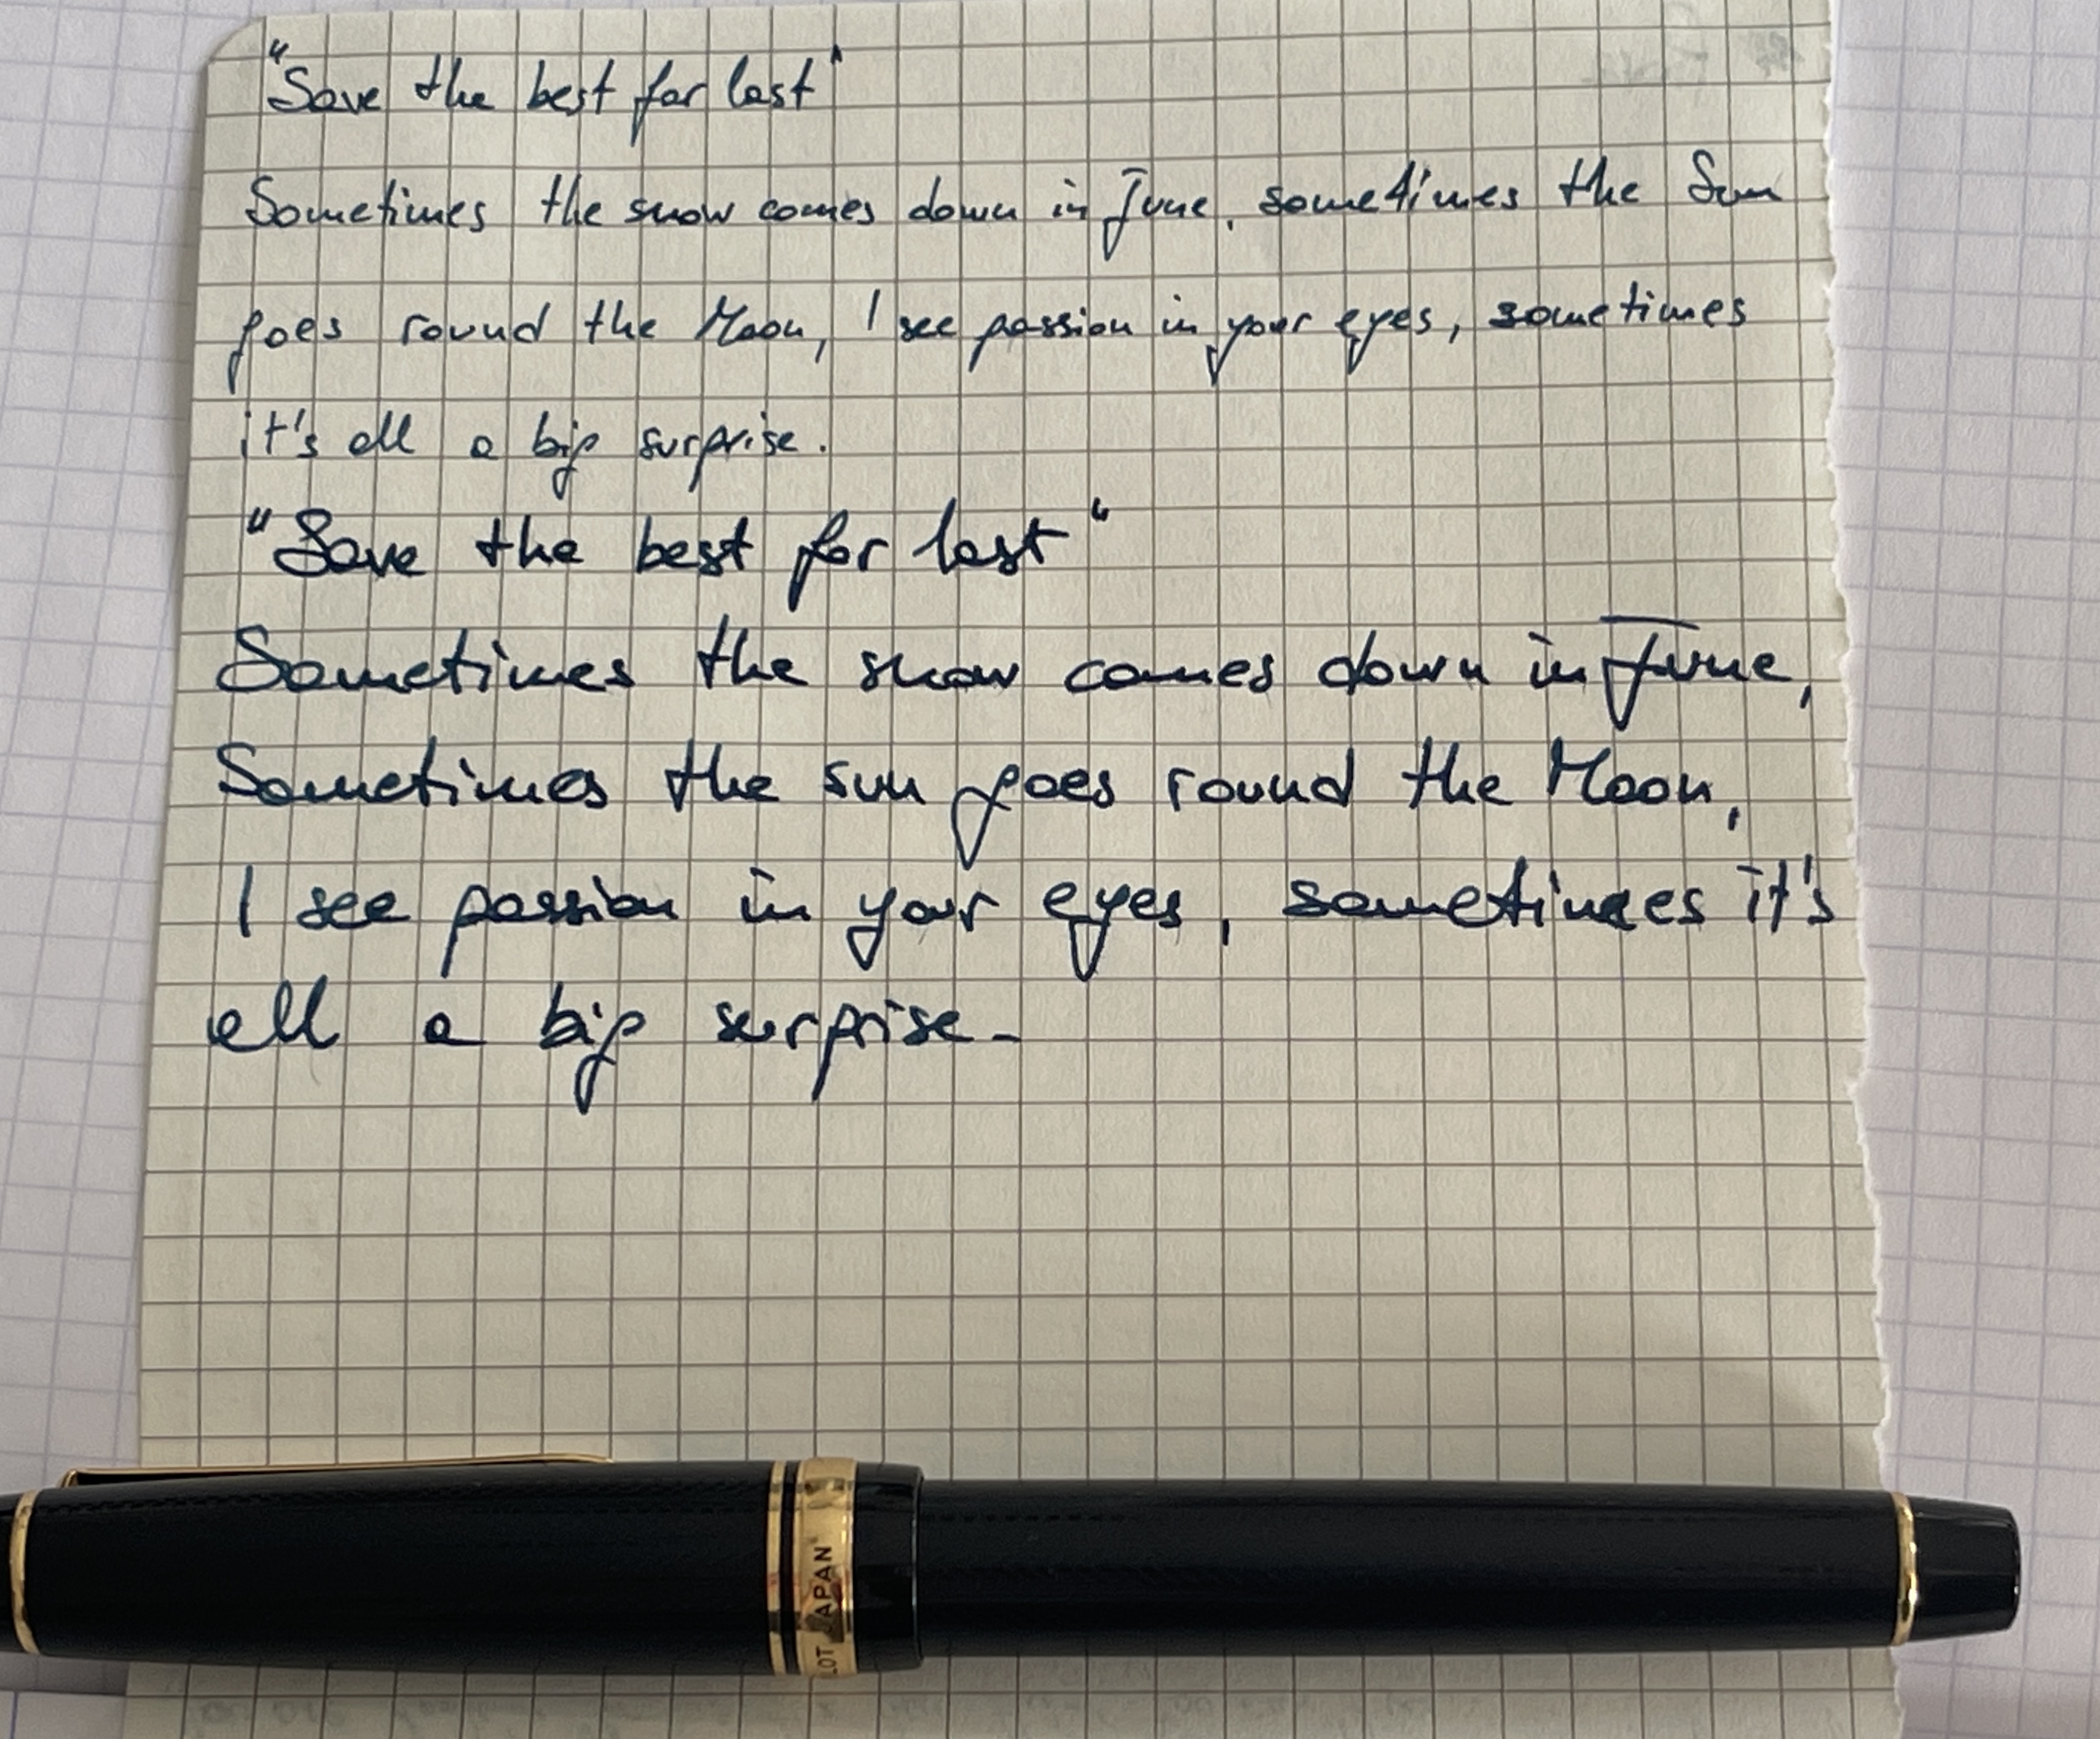 "Save the best for last"
Sometimes the snow comes down in June, sometimes the Sun
goes round the Moon, I see passion in your eyes, sometimes
it's all a big surprise.
"Save the best for last"
Sometimes the snow comes down in June,
Sometimes the sun goes round the Moon,
I see passion in your eyes, sometimes it's
all a big surprise-
LOT JAPAN